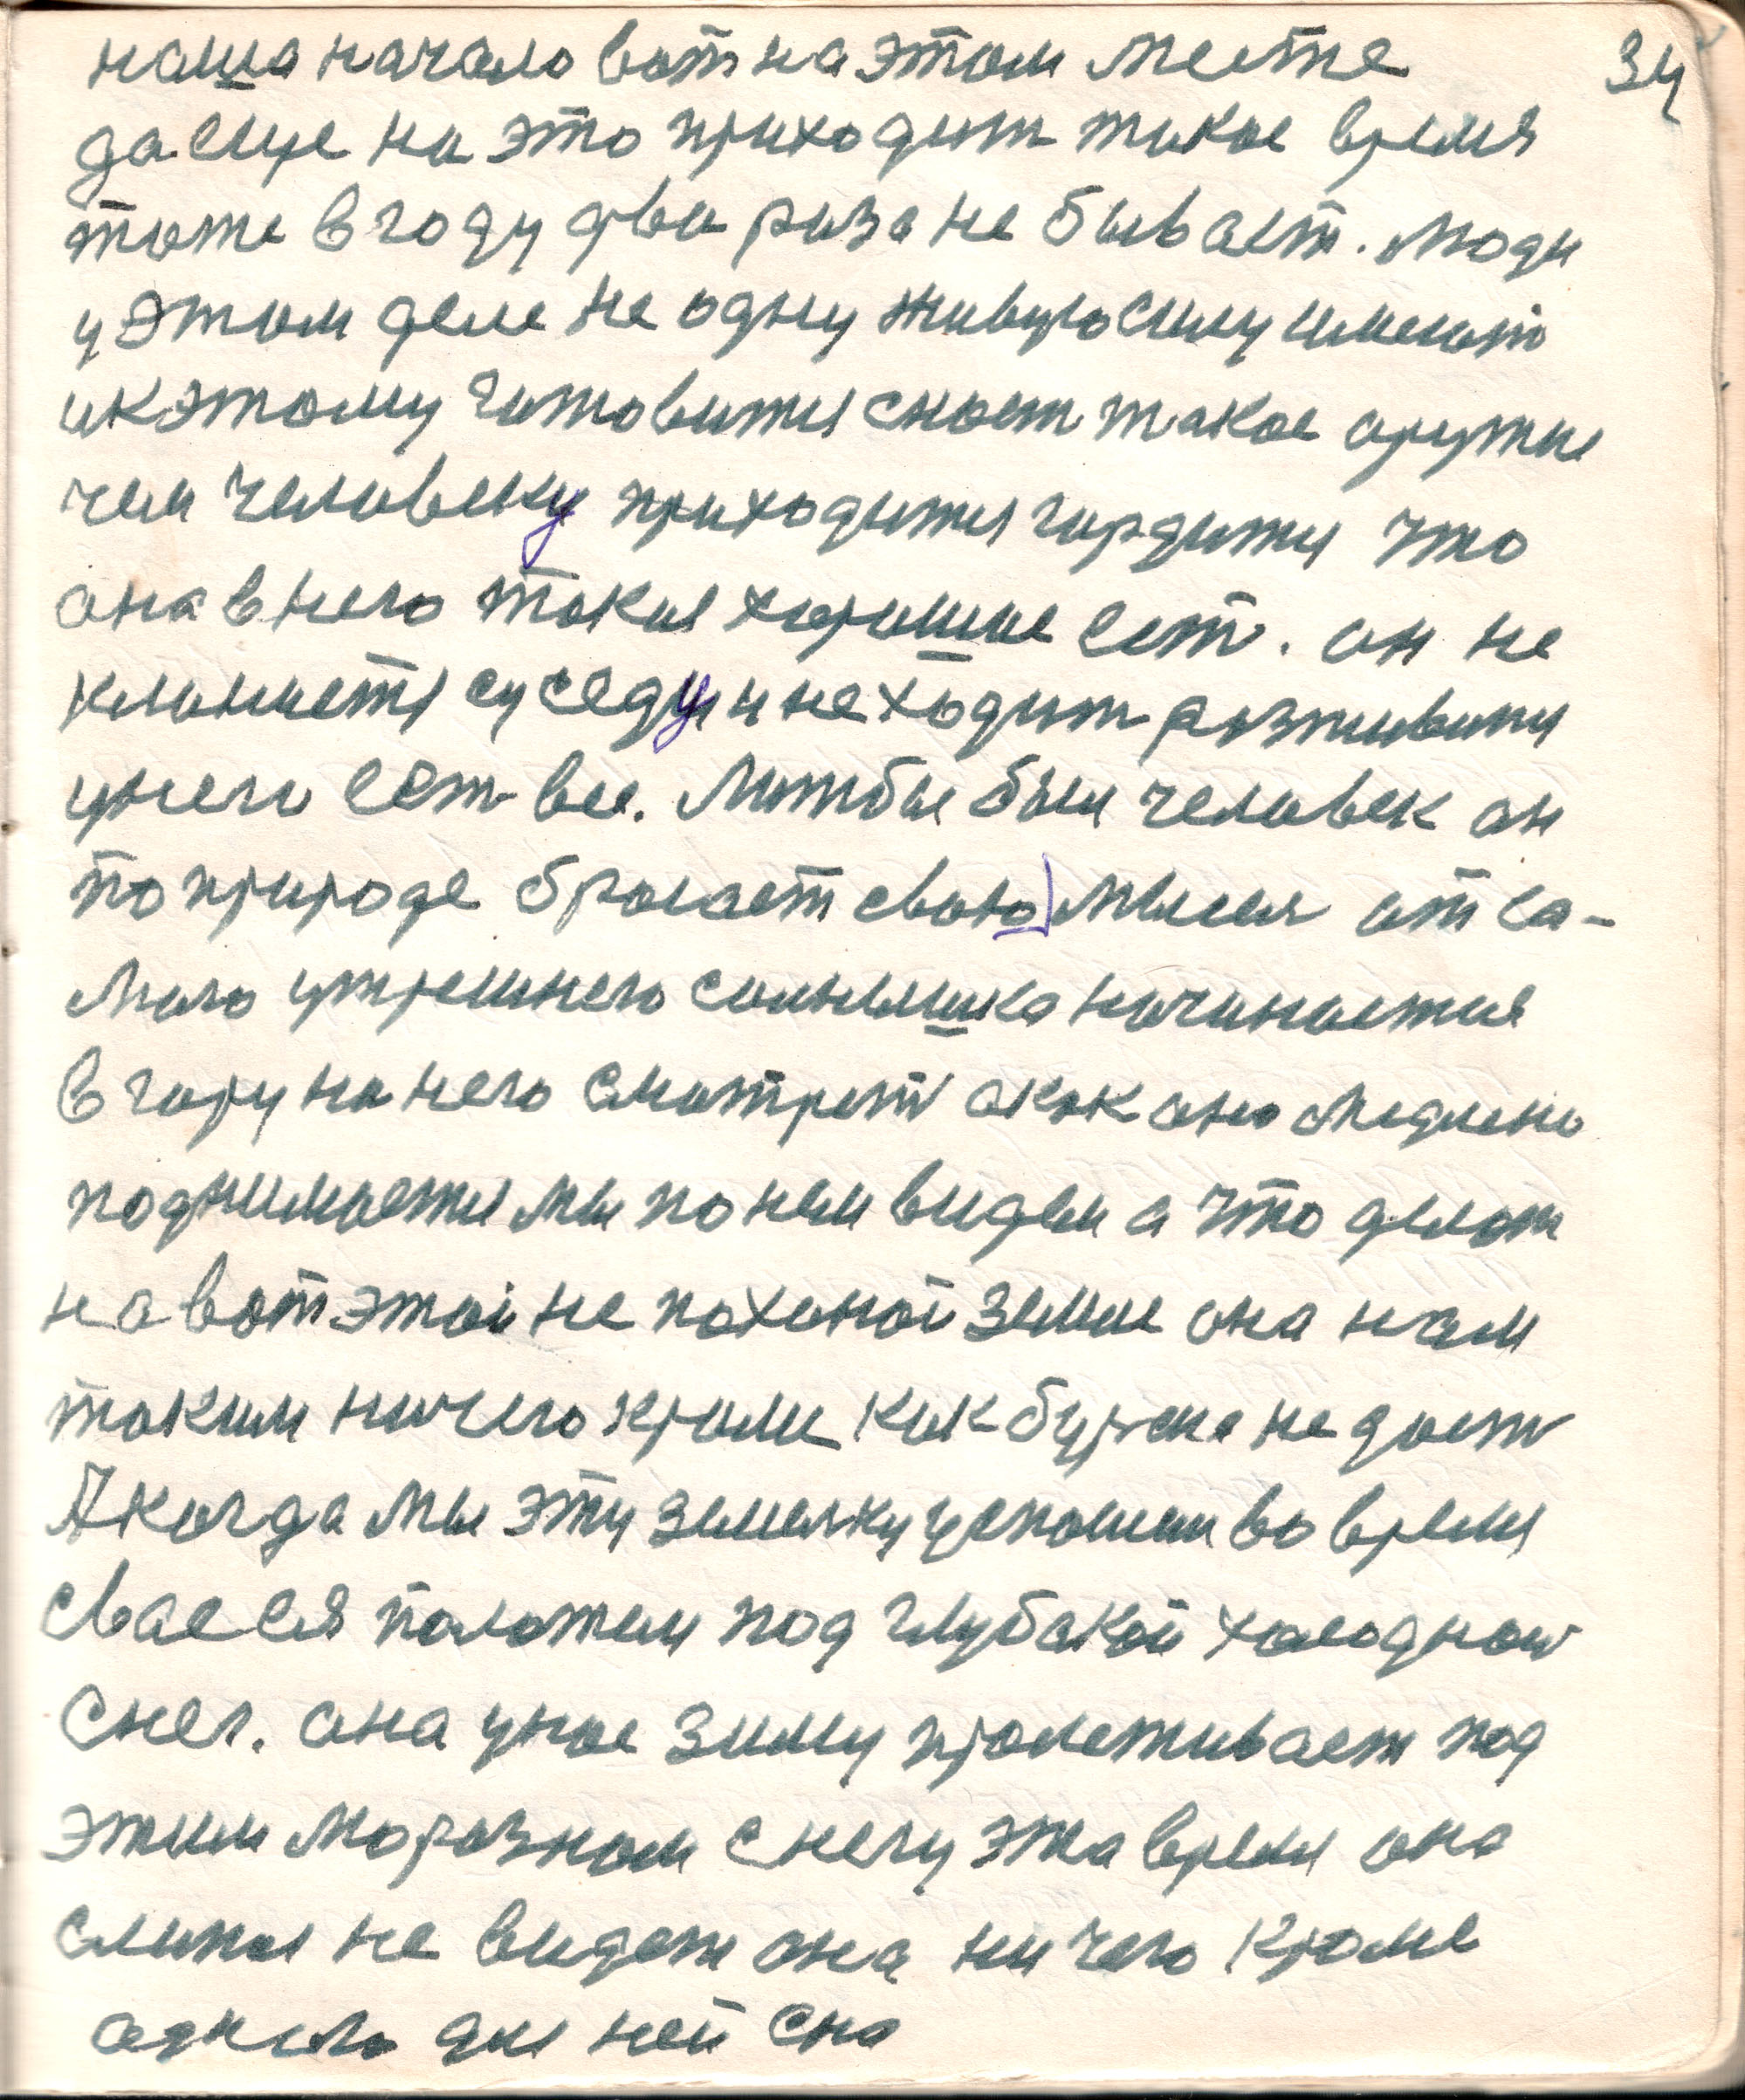 34
наша начало вот на этом месте
да еще на это приходит такое время
тоже в году два раза не бывает. Люди
у этом деле не одну живую силу имеют
и к этому готовится скот такое аружие
чем человеку приходится гордится что
она в него такия хорошие ест. он не
кланяется суседу и не ходит разживится
у него ест все. Лиш бы был человек он
по природе бросает свою мысля от са-
мого утрешнего солнышка начинается
в гору на него смотрет а как оно медлено
поднимается мы по нем видем а что делат
на вот этой не паханой земле она нам
таким ничего кроми как буряна не дает
А когда мы эту земельку успашим во время
сваеся положем под глубакой холодной
снег. она усюе зиму пролеживает под
этим морозном снегу эта время она
слипая не видет она ни чего кроме
аднаго для ней сна